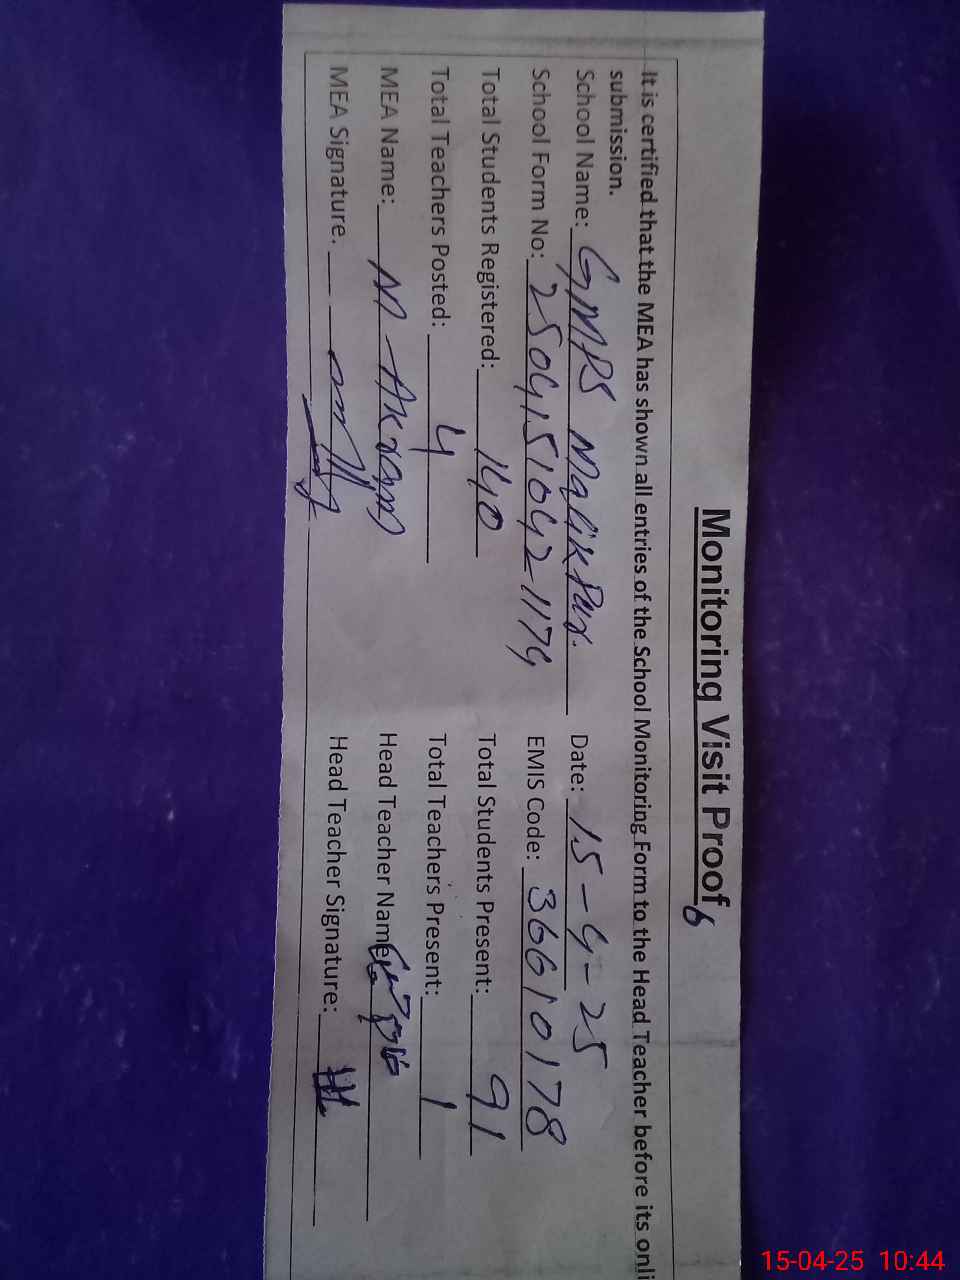 Monitoring Visit Proof
It is certified that the MEA has shown all entries of the School Monitoring Form to the Head Teacher before its onli
submission.
School Name: GMPS Malik Pur. Date: 15-4-25
School Form No: 25041510421174 EMIS Code: 36610178
Total Students Registered: 140 Total Students Present: 91
Total Teachers Posted: 4 Total Teachers Present: 1
MEA Name: M Akram Head Teacher Name:
MEA Signature. Head Teacher Signature:
15-04-25 10:44